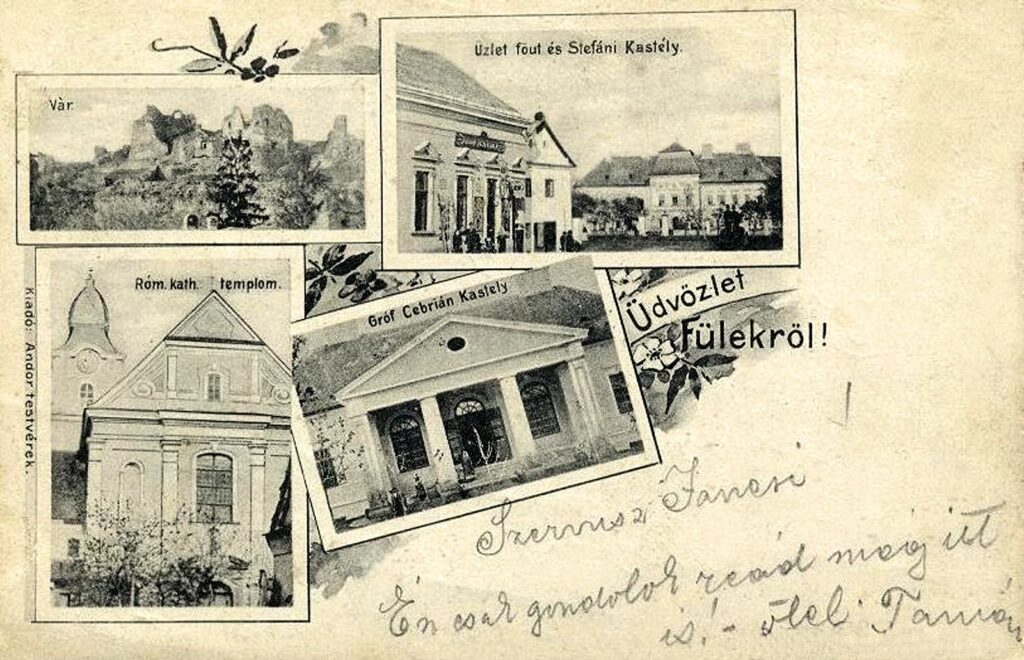 Vár.
Üzlet föut és Stefáni Kastély.
Róm. kath. templom.
Gróf Cebrián Kastely
Üdvözlet
Fülekröl!
Kiadó: Andor testvérek.
Szervusz Jancsi
Én csak gondolok reád még itt
is! - ölel Tamás